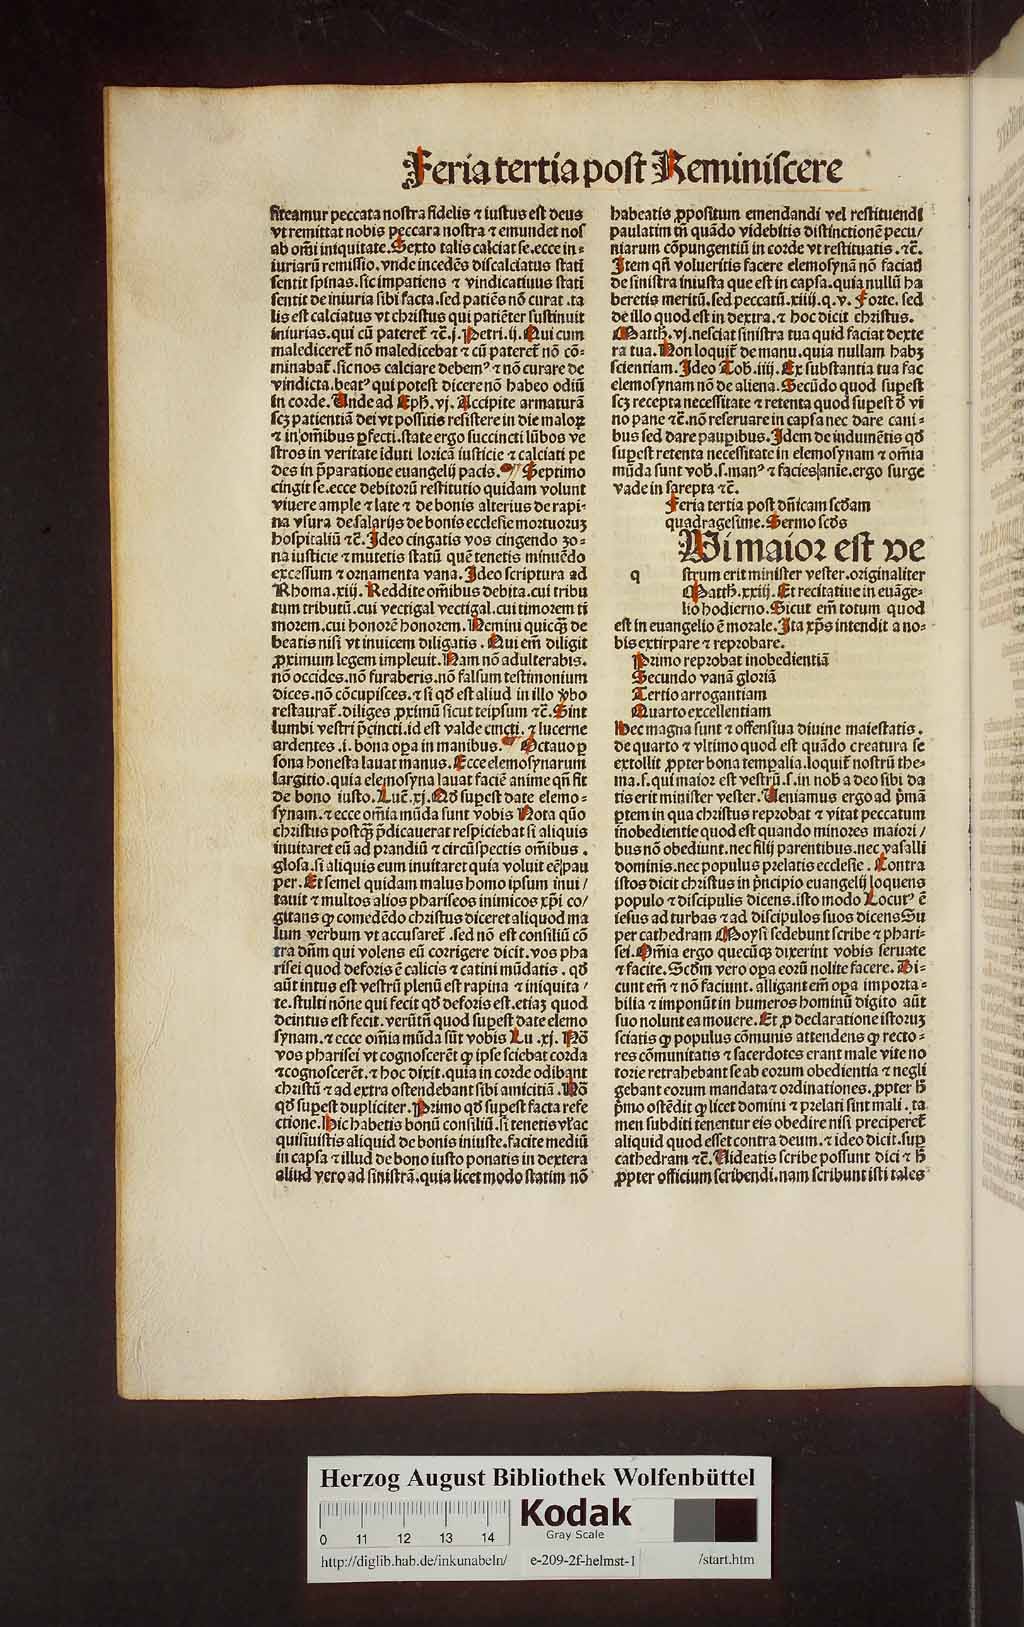 Feria tertia post Reminiscere
fiteamur peccata nostra fidelis ⁊ iustus est deus
vt remittat nobis peccara nostra ⁊ emundet nos
ab om̄i iniquitate. Sexto talis calciat se. ecce in⸗
iuriarū remissio. vnde incedēs discalciatus stati
sentit spinas. sic impatiens ⁊ vindicatiuus stati
sentit de iniuria sibi facta. sed patiēs nō curat. ta
lis est calciatus vt christus qui patiēter sustinuit
iniurias. qui cū pateret᷑ ⁊c̄. j. Petri. ij. Qui cum
malediceret᷑ nō maledicebat ⁊ cū pateret᷑ nō cō⸗
minabat᷑. sic nos calciare debemꝰ ⁊ nō curare de
vindicta. beatꝰ qui potest dicere nō habeo odiū
in corde. Unde ad Eph. vj. Accipite armaturā
scꝫ patientiā dei vt possitis resistere in die maloꝝ
⁊ in om̄ibus ꝑfecti. state ergo succincti lūbos ve
stros in veritate iduti loricā iusticie ⁊ calciati pe
des in p̄paratione euangelij pacis. ¶ Septimo
cingit se. ecce debitorū restitutio quidam volunt
viuere ample ⁊ late ⁊ de bonis alterius de rapi⸗
na vsura de salarijs de bonis ecclesie mortuoruꝫ
hospitaliū ⁊c̄. Ideo cingatis vos cingendo zo⸗
na iusticie ⁊ mutetis statū quē tenetis minuēdo
excessum ⁊ ornamenta vana. Ideo scriptura ad
Rhoma. xiij. Reddite om̄ibus debita. cui tribu
tum tributū. cui vectigal vectigal. cui timorem ti
morem. cui honorē honorem. Nemini quicꝙ̄ de
beatis nisi vt inuicem diligatis. Qui em̄ diligit
ꝓximum legem impleuit. Nam nō adulterabis.
nō occides. nō furaberis. nō falsum testimonium
dices. nō cōcupisces. ⁊ si qd̄ est aliud in illo ṽbo
restaurat᷑. diliges ꝓximū sicut teipsum ⁊c̄. Sint
lumbi vestri p̄cincti. id est valde cincti. ⁊ lucerne
ardentes. i. bona oꝑa in manibus. ¶ Octauo ꝑ
sona honesta lauat manus. Ecce elemosynarum
largitio. quia elemosyna lauat faciē anime qn̄ fit
de bono iusto. Luc̄. xj. Qd̄ suꝑest date elemo⸗
synam. ⁊ ecce om̄ia mūda sunt vobis Nota quō
christus postꝙ̄ p̄dicauerat respiciebat si aliquis
inuitaret eū ad prandiū ⁊ circūspectis om̄ibus.
glosa. si aliquis eum inuitaret quia voluit eē pau
per. Et semel quidam malus homo ipsum inui/
tauit ⁊ multos alios phariseos inimicos xp̄i co/
gitans ꝙ comedēdo christus diceret aliquod ma
lum verbum vt accusaret᷑. sed nō est consiliū cō
tra dn̄m qui volens eū corrigere dicit. vos pha
risei quod deforis ē calicis ⁊ catini mūdatis. qd̄
aūt intus est vestrū plenū est rapina ⁊ iniquita/
te. stulti nōne qui fecit qd̄ deforis est. etiaꝫ quod
deintus est fecit. verūtn̄ quod suꝑest date elemo
synam. ⁊ ecce om̄ia mūda sūt vobis Lu. xj. Nō
vos pharisei vt cognoscerēt ꝙ ipse sciebat corda
⁊ cognoscerēt. ⁊ hoc dixit. quia in corde odibant
christū ⁊ ad extra ostendebant sibi amicitiā. Nō
qd̄ suꝑest dupliciter. Primo qd̄ suꝑest facta refe
ctione. Hic habetis bonū consiliū. si tenetis vl᷑ ac
quisiuistis aliquid de bonis iniuste. facite mediū
in capsa ⁊ illud de bono iusto ponatis in dextera
aliud vero ad sinistrā. quia licet modo statim nō
habeatis ꝓpositum emendandi vel restituendi
paulatim tn̄ quādo videbitis distinctionē pecu/
niarum cōpungentiū in corde vt restituatis. ⁊c̄.
Item qn̄ volueritis facere elemosynā nō faciati
de sinistra iniusta que est in capsa. quia nullū ha
beretis meritū. sed peccatū. xiiij. q. v. Forte. sed
de illo quod est in dextra. ⁊ hoc dicit christus.
Matth. vj. nesciat sinistra tua quid faciat dexte
ra tua. Non loquit᷑ de manu. quia nullam habꝫ
scientiam. Ideo Tob. iiij. Ex substantia tua fac
elemosynam nō de aliena. Secūdo quod suꝑest
scꝫ recepta necessitate ⁊ retenta quod suꝑest d̄ vi
no pane ⁊c̄. nō reseruare in capsa nec dare cani⸗
bus sed dare pauꝑibus. Idem de indumētis qd̄
suꝑest retenta necessitate in elemosynam ⁊ om̄ia
mūda sunt vob̄. s. manꝰ ⁊ facies anīe. ergo surge
vade in sarepta ⁊c̄.
Feria tertia post dn̄icam scd̄am
quadragesime. Sermo scd̄s
Wi maior est ve
q strum erit minister vester. originaliter
Matth. xxiij. Et recitatiue in euāge⸗
lio hodierno. Sicut em̄ totum quod
est in euangelio ē morale. Ita xp̄s intendit a no⸗
bis extirpare ⁊ reprobare.
Primo reprobat inobedientiā
Secundo vanā gloriā
Tertio arrogantiam
Quarto excellentiam
Hec magna sunt ⁊ offensiua diuine maiestatis.
de quarto ⁊ vltimo quod est quādo creatura se
extollit ꝓpter bona tempalia. loquit᷑ nostrū the⸗
ma. s. qui maior est vestrū. s. in nob̄ a deo sibi da
tis erit minister vester. Veniamus ergo ad p̄mā
ꝑtem in qua christus reprobat ⁊ vitat peccatum
inobedientie quod est quando minores maiori/
bus nō obediunt. nec filij parentibus. nec vasalli
dominis. nec populus prelatis ecclesie. Contra
istos dicit christus in p̄ncipio euangelij loquens
populo ⁊ discipulis dicens. isto modo Locutꝰ ē
iesus ad turbas ⁊ ad discipulos suos dicens Su
per cathedram Moysi sedebunt scribe ⁊ phari⸗
sei. Om̄ia ergo quecūqꝫ dixerint vobis seruate
⁊ facite. Scd̄m vero oꝑa eorū nolite facere. Di⸗
cunt em̄ ⁊ nō faciunt. alligant em̄ oꝑa importa⸗
bilia ⁊ imponūt in humeros hominū digito aūt
suo nolunt ea mouere. Et ꝓ declaratione istoruꝫ
sciatis ꝙ populus cōmunis attendens ꝙ recto⸗
res cōmunitatis ⁊ sacerdotes erant male vite no
torie retrahebant se ab eorum obedientia ⁊ negli
gebant eorum mandata ⁊ ordinationes. ꝓpter h̄
p̄mo ostēdit ꝙ licet domini ⁊ prelati sint mali. ta
men subditi tenentur eis obedire nisi preciperet᷑
aliquid quod esset contra deum. ⁊ ideo dicit. suꝑ
cathedram ⁊c̄. Uideatis scribe possunt dici ⁊ h̄
ꝓpter officium scribendi. nam scribunt isti tales
Herzog August Bibliothek Wolfenbüttel
Kodak
Gray Scale
0 11 12 13 14
http://diglib.hab.de/inkunabeln/ e-209-2f-helmst-1 /start.htm